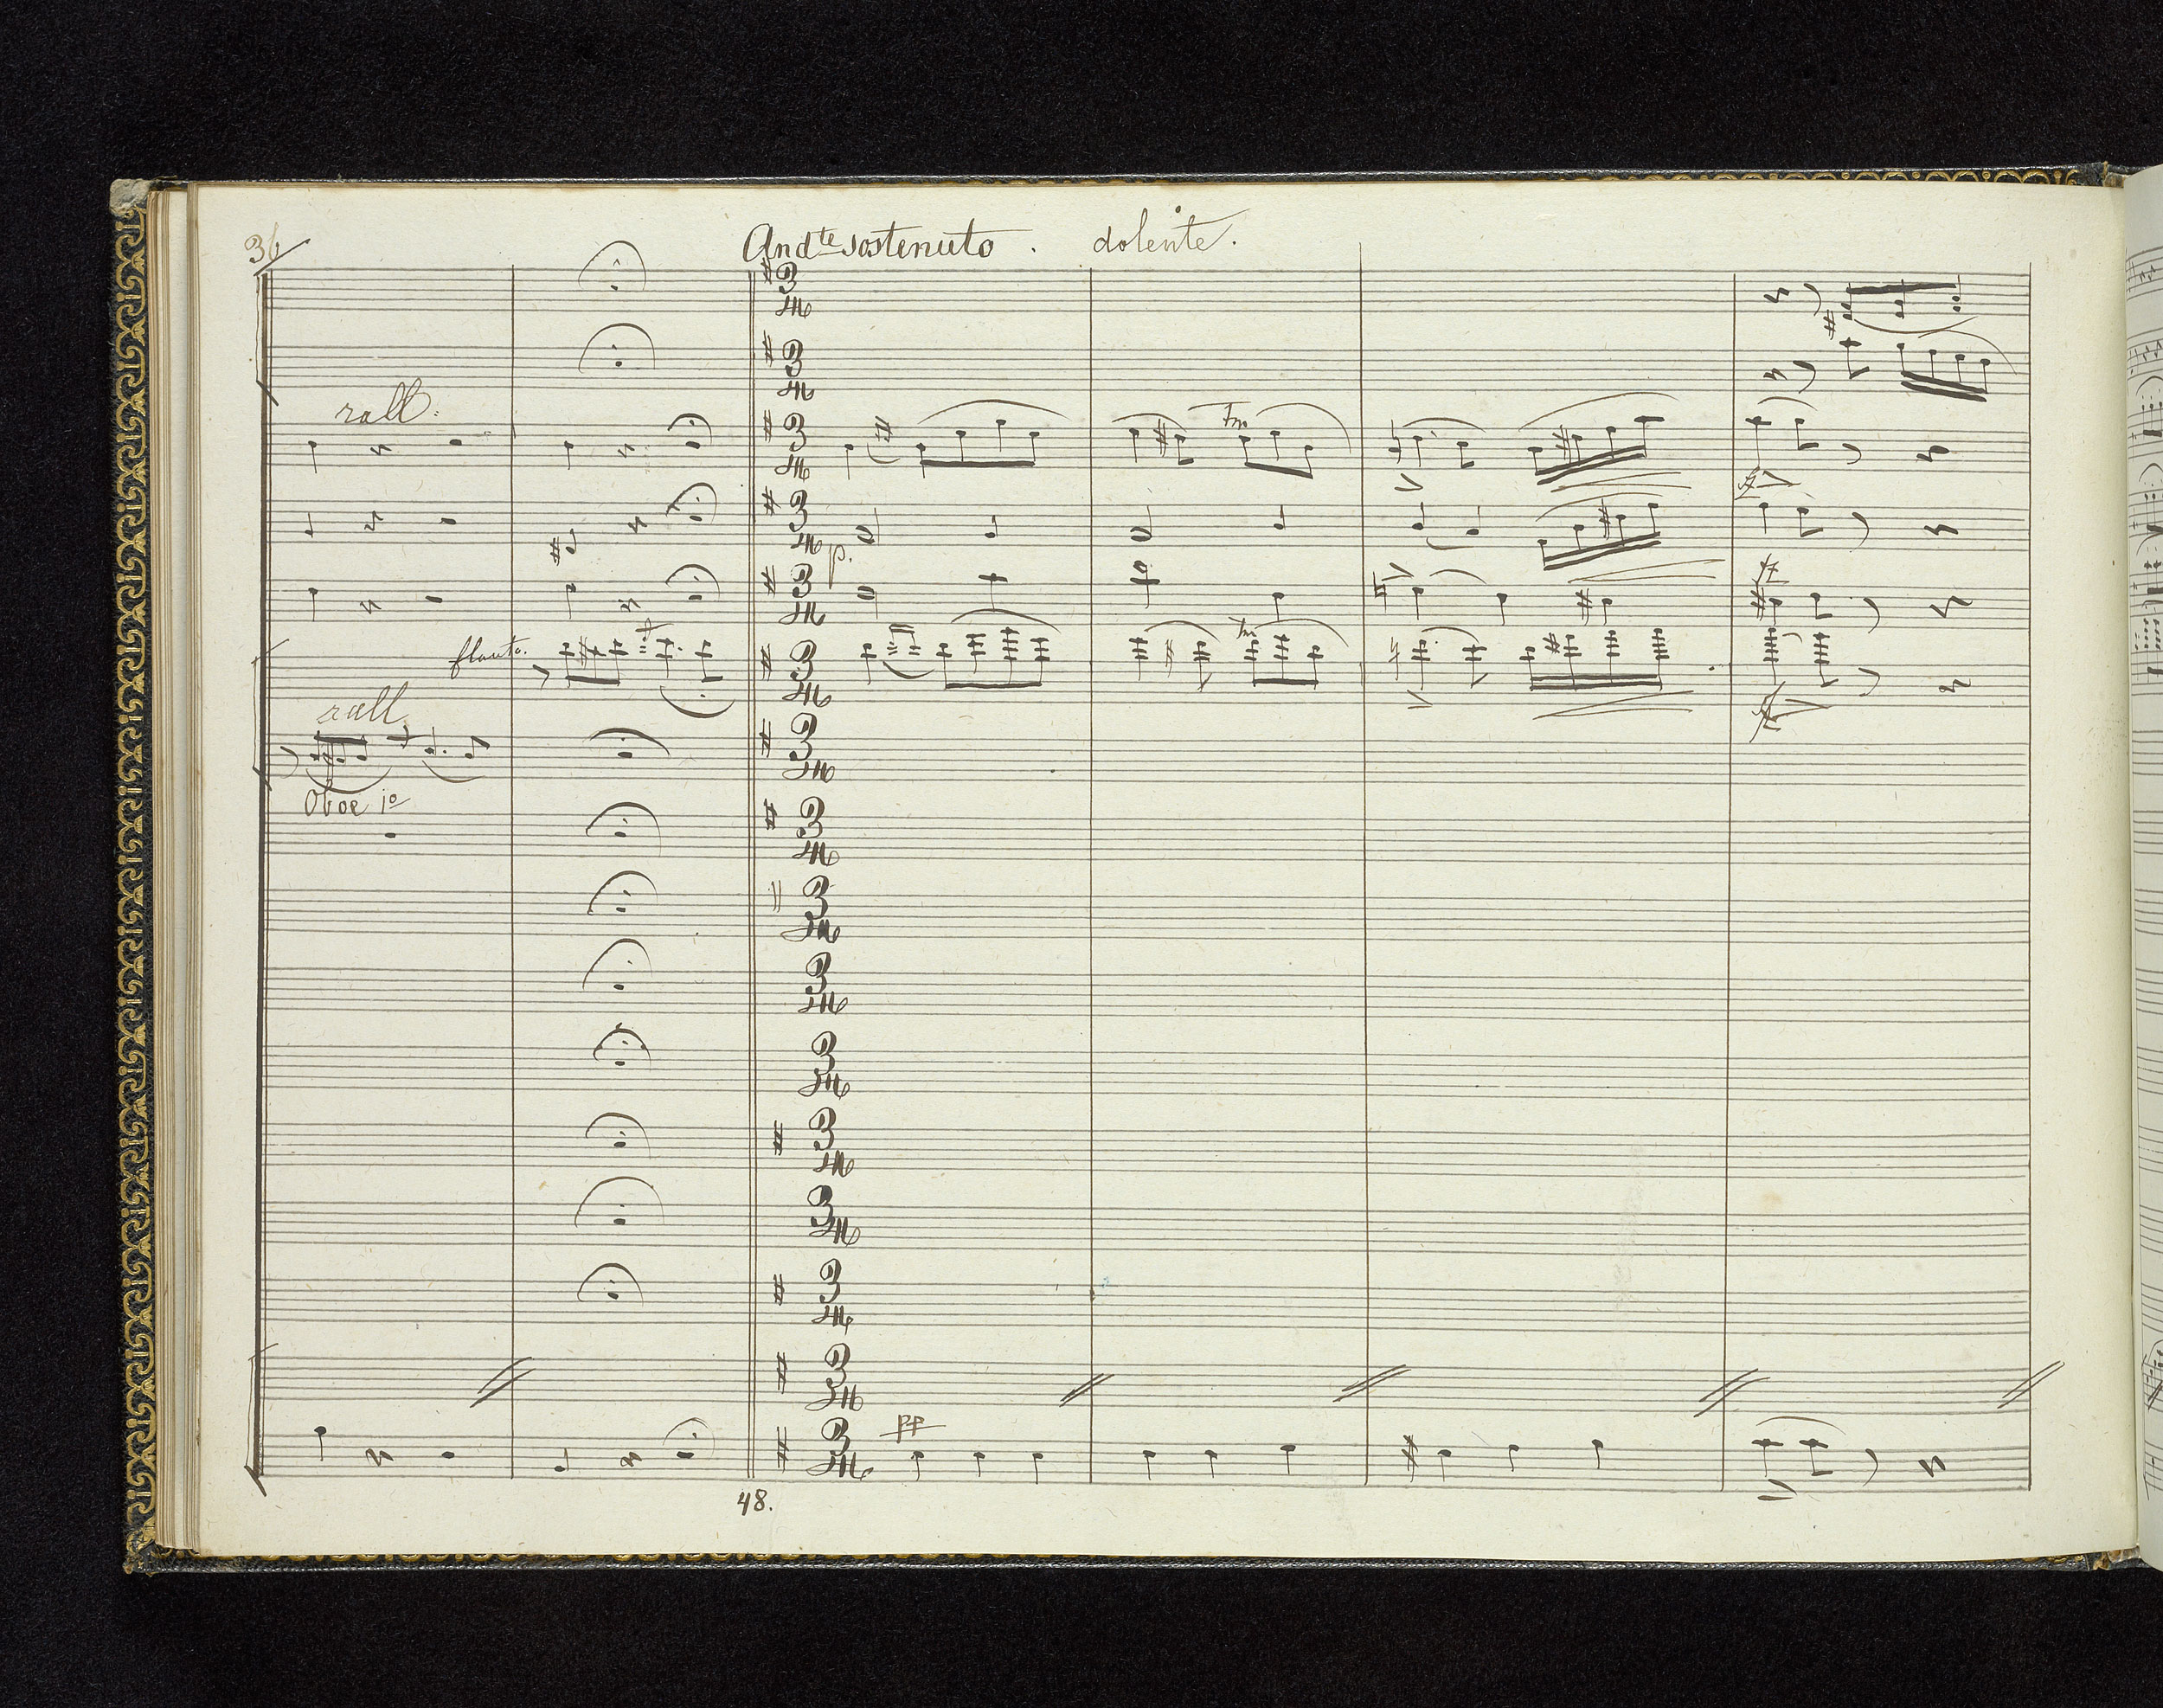 36
Andte sostenuto. dolente.
rall.
p.
fz
flauto.
rall
Oboe 1o
pp
48.